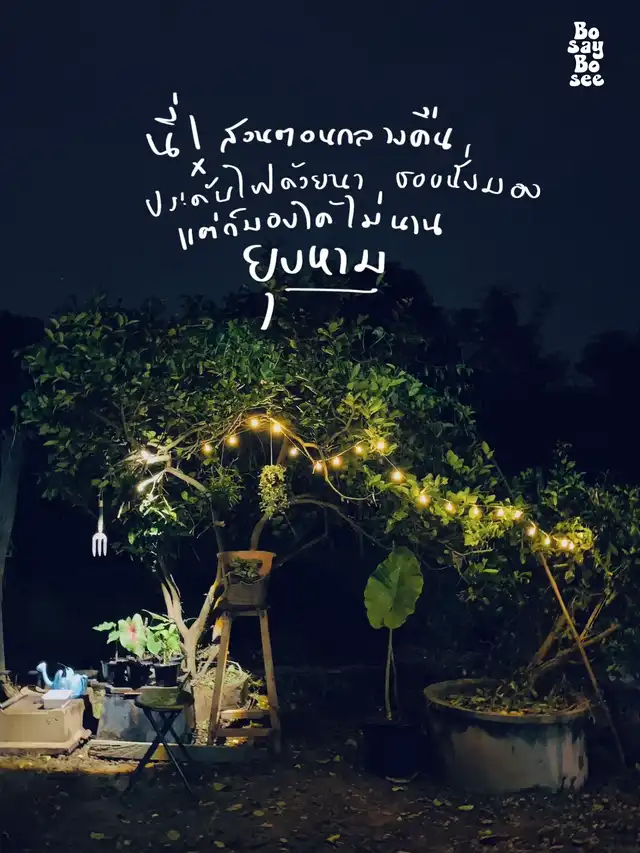 Bo
say
Bo
see
นี่! สวนตอนกลางคืน
ประดับไฟด้วยนา ชอบนั่งมอง
แต่ก็มองได้ไม่นาน
ยุงหาม